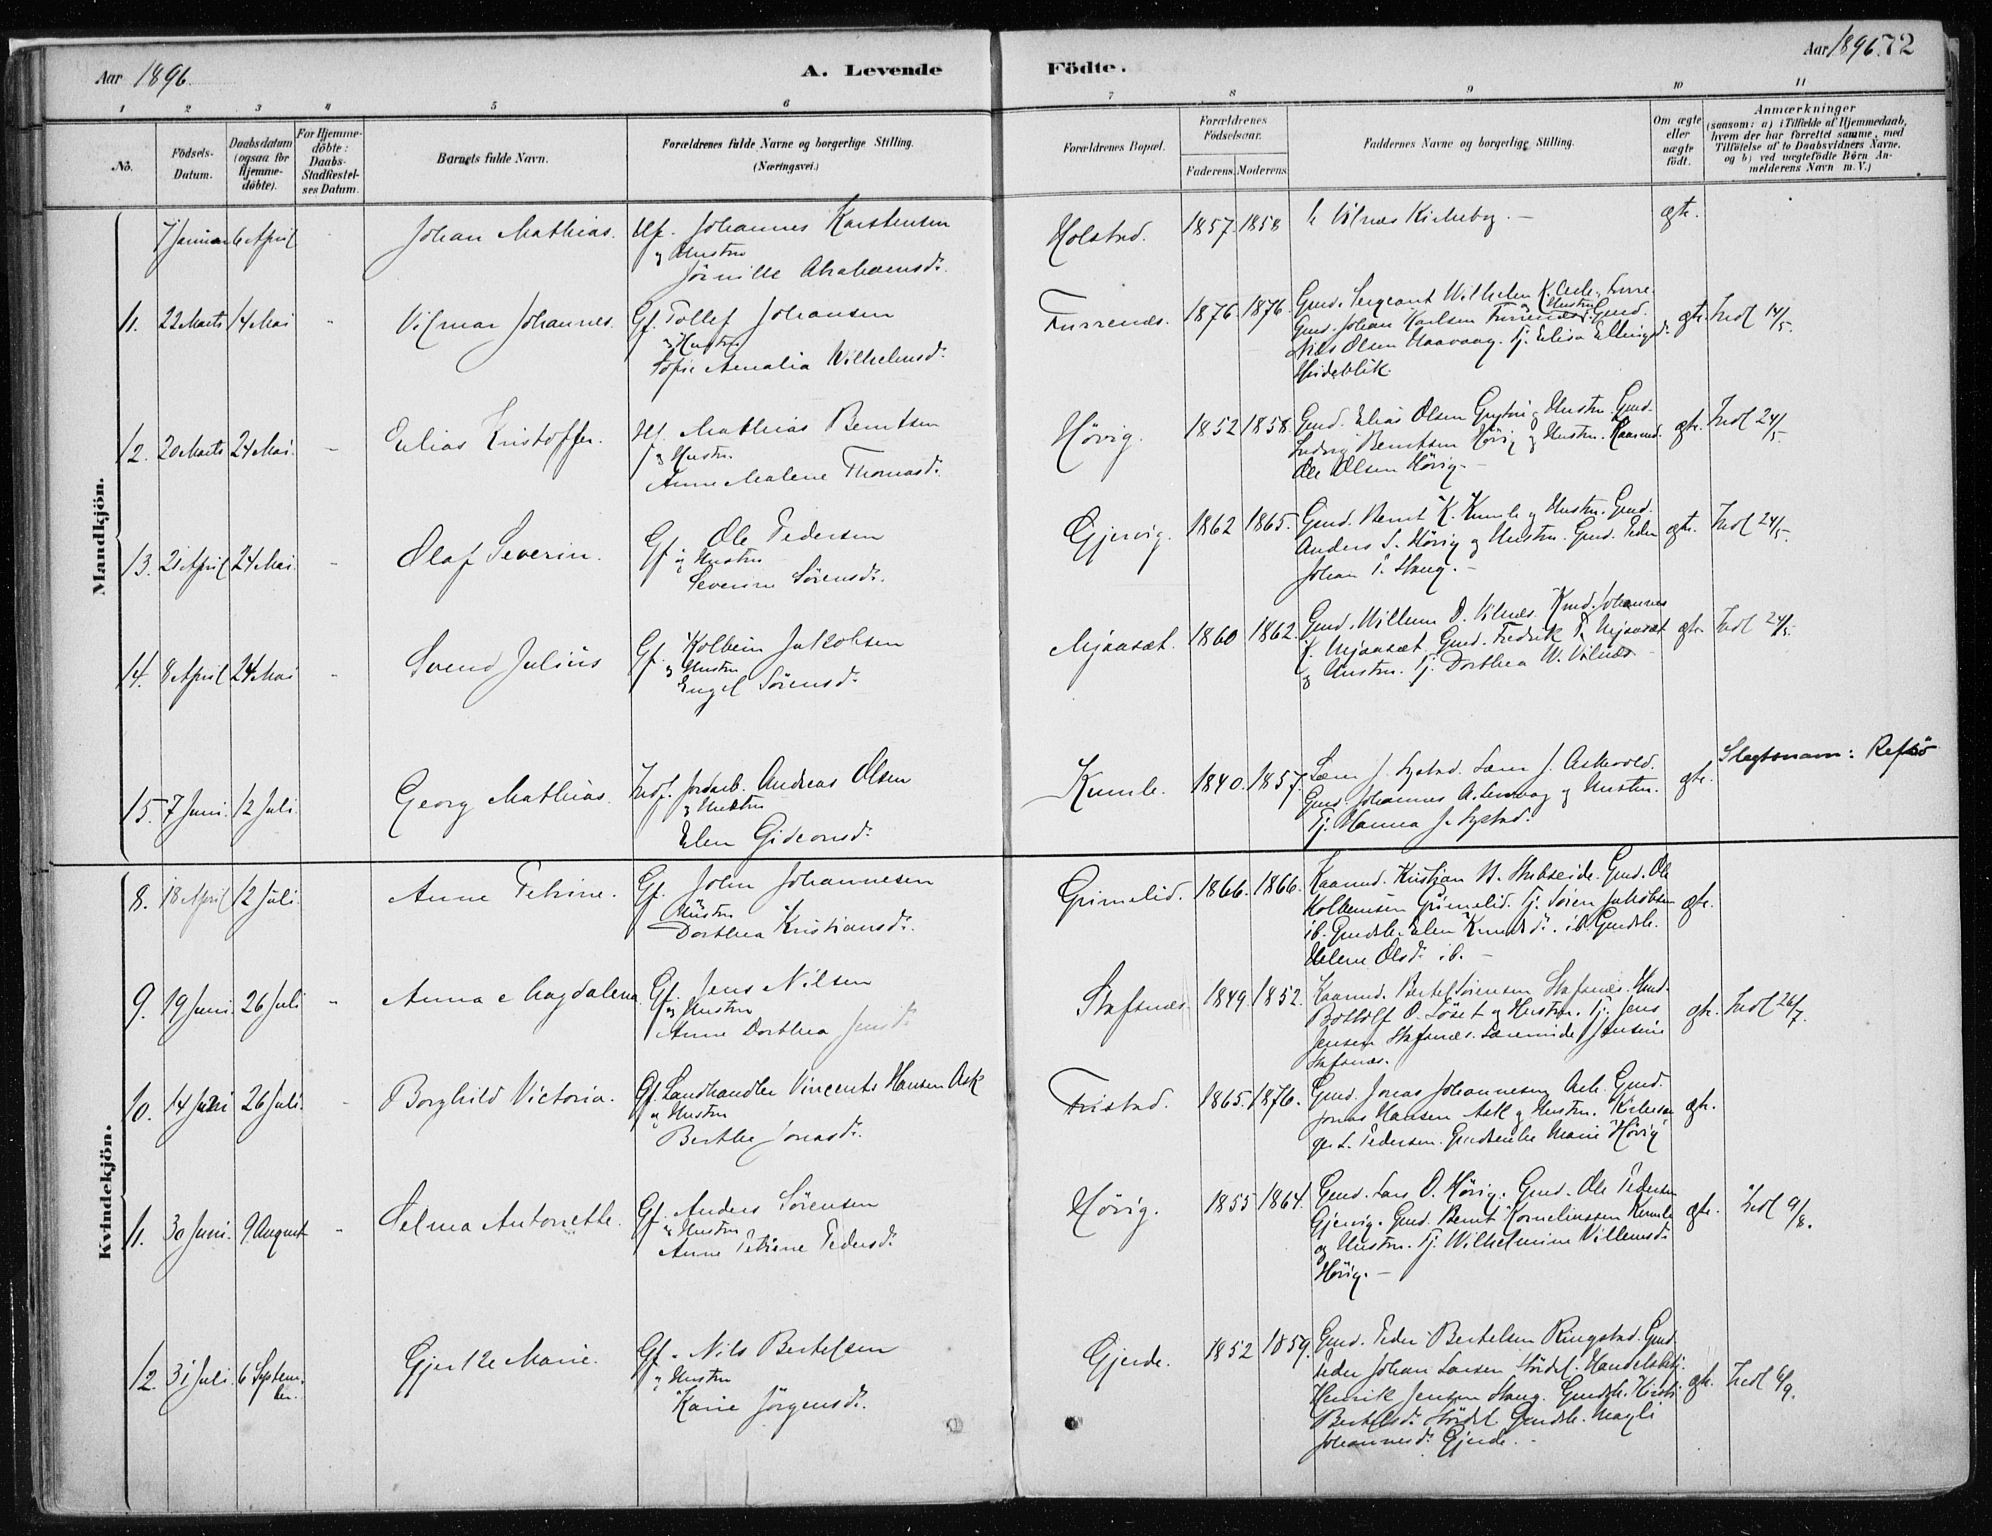 Aar 1896.
A. Levende Födte.
Aar 1896. 72
1 2 3 4 5 6 7 8 9 10 11
No.
Födsels-Datum.
Daabsdatum (ogsaa for Hjemme-döbte).
For Hjemme-döbte: Daabs-Stadfæstel-ses Datum.
Barnets fulde Navn.
Forældrenes fulde Navne og borgerlige Stilling.
(Næringsvei.)
Forældrenes Bopæl.
Forældrenes Födselsaar.
Faderens. Moderens.
Faddernes Navne og borgerlige Stilling.
Om ægte eller uægte födt.
Anmærkninger
(saasom: a) i Tilfælde af Hjemmedaab,
hvem der har forrettet samme, med
Tilföielse af to Daabsvidners Navne,
og b) ved uægtefödte Börn An-
melderens Navn m. V.)
Mandkjön.
7 Januar 6 April Johan Mathias. Hf. Johannes Karstensen
og Hustru
Abrahamsdr.
Holstad. 1857. 1858 Vilnes Kirkebog. - ægte.
11. 22 Marts 14 Mai Vilmar Johannes. Gf. Tollef Johansen
og Hustru
Sofie Amalia Wilhelmsdr.
Furrenes. 1876. 1876. Gmd. Sergeant Wilhelm K. Ask. Furre.
Gmd. Johan Karlsen Furrenes og Hustru. Gmd.
Nils Olsen Haavaag. Tj. Elisa Ellingsdr.
ægte. Indl 14/5.
12. 20 Marts 24 Mai. Elias Kristoffer. Hf. Mathias Berntsen
og Hustru.
Anne Malene Thomasdr.
Hövig. 1852 1858. Gmd. Elias Olsen Grytöi og Hustru. Gmd.
Ludvig Berntsen Hövig og Hustru. Kaarmd.
Ole Olsen Hövig. -
ægte. Indl 24/5.
13. 21 April 24 Mai Olaf Severin. Gf. Ole Pedersen
og Hustru
Severine Sörensdr.
Gjervig. 1862 1865. Gmd. Bernt K. Kumle og Hustru. Gmd.
Anders S. Hövig og Hustru. Gmd. Peder
Johan P. Staug. -
ægte. Indl 24/5.
14. 8 April 24 Mai Svend Julius Gf. Kolbein Jakobsen
og Hustru
Engel Sörensdr.
Mjaaset. 1860 1862. Gmd. Willum D. Vilnes. Kmd. Johannes
K. Mjaaset. Gmd. Fredrik T. Mjaaset
og Hustru. Tj. Dorthea W. Vilnes
ægte. Indl 24/5.
15. 7 Juni. 12 Juli. Georg Mathias. Indf. Jordarb. Andreas Olsen
og Hustru
Elen Gideonsdr.
Kumle. 1840. 1857. Lærer J. Systad. Lærer J. Askvold.
Gmd. Johannes A. og Hustru.
Tj. Hanna J. Systad.
ægte. Slegtsnavn: Refsö
Kvindekjön.
8. 18 April 12 Juli. Anne Petrine. Gf. John Johannesen
og Hustru
Dorthea Kristiansdr.
Grimelid. 1866. 1866. Kaarmd. Kristian B. Skibseide. Gmd. Ole
Kolbeinsen Grimelid. Tj. Sören Jakobsen
ib. Gmdsk. Elen Knudsdr. ib. Gmdsk.
Helene Olsdr. ib. -
ægte.
9. 19 Juni. 26 Juli Anna Magdalena. Gf. Jens Nilsen
og Hustru
Anne Dorthea Jensdr.
Stafsnes. 1849. 1852. Kaarmd. Bertel Sörensen Stafsnes. Gmd.
Bottolf O. Löset og Hustru. Tj. Jens
Jensen Stafsnes. Jensine
Stafsnes.
ægte. Indl 26/7.
10. 14 Juni 26 Juli. Borghild Victoria. Gf. Landhandler Vincents Hansen Ask
og Hustru
Berthe Jonasdr.
Fristad. 1865. 1876. Gmd. Jonas Johannesen Ask. Gmd.
Jonas Hansen Ask og Hustru. Kirkesan
ger L. Pedersen. Gmdsenke Marie Hövig
ægte.
11. 30 Juni. 9. August Selma Antonette. Gf. Anders Sörensen
og Hustru
Anne Petrine Pedersdr.
Hövig. 1855 1864. Gmd. Lars O. Hövig. Gmd. Ole Pedersen
Gjervig. Gmd. Bernt Korneliussen Kumle
og Hustru. Tj. Wilhelmine Villumsdr.
Hövig. -
ægte. Indl 9/8.
12. 31 Juli. 6 Septem-
ber. Gjertine Marie. Gf. Nils Bertelsen
og Hustru
Karie Jörgensdr.
Gjerde. 1852 1859. Gmd. Peder Bertelsen Ringstad. Gmd.
Peder Johan Larsen Hördal. Handelsbetj.
Henrik Jensen Staug. Gmdsk. Kirsti
Bertelsdr. Hördal Gmdsk. Magli
Johannesdr. Gjerde. -
ægte. Indl 6/9.